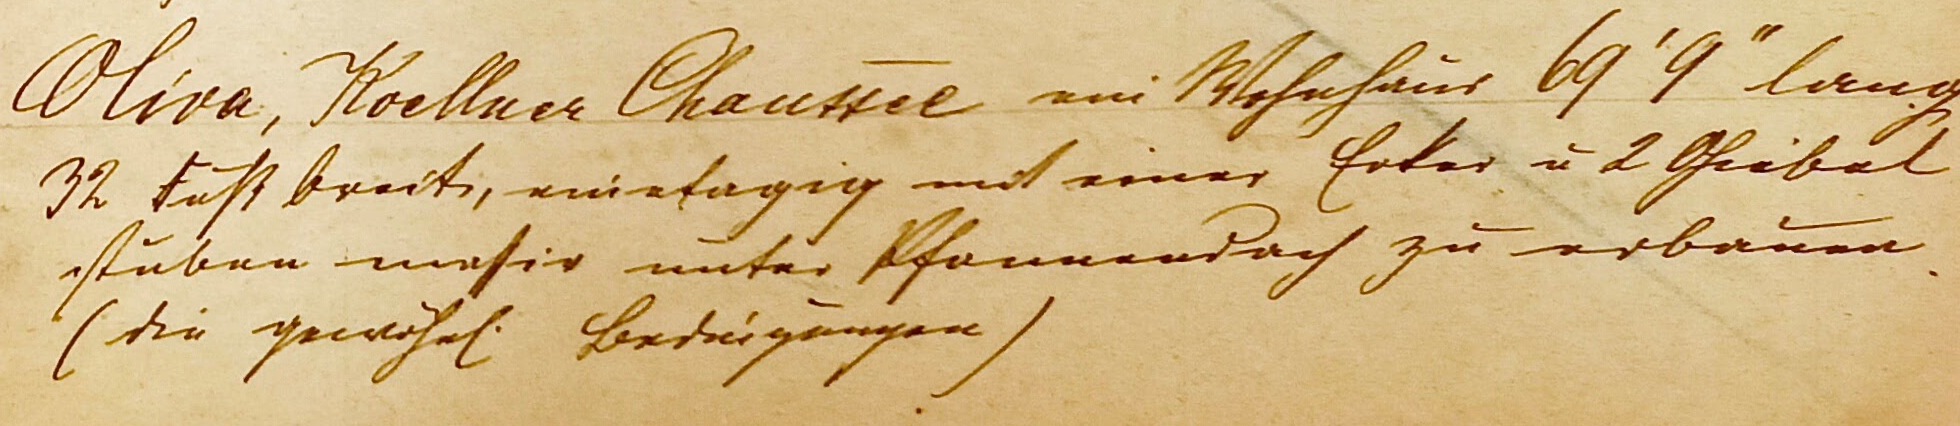 Oliva, Koellner Chaussee ein Wohnhaus 69' 9" lang
32 Fuß breit, einetagig mit einer Erker u 2 Giebel
stuben massiv unter Pfannendach zu erbauen.
(die gewöhnl. Bedingungen)